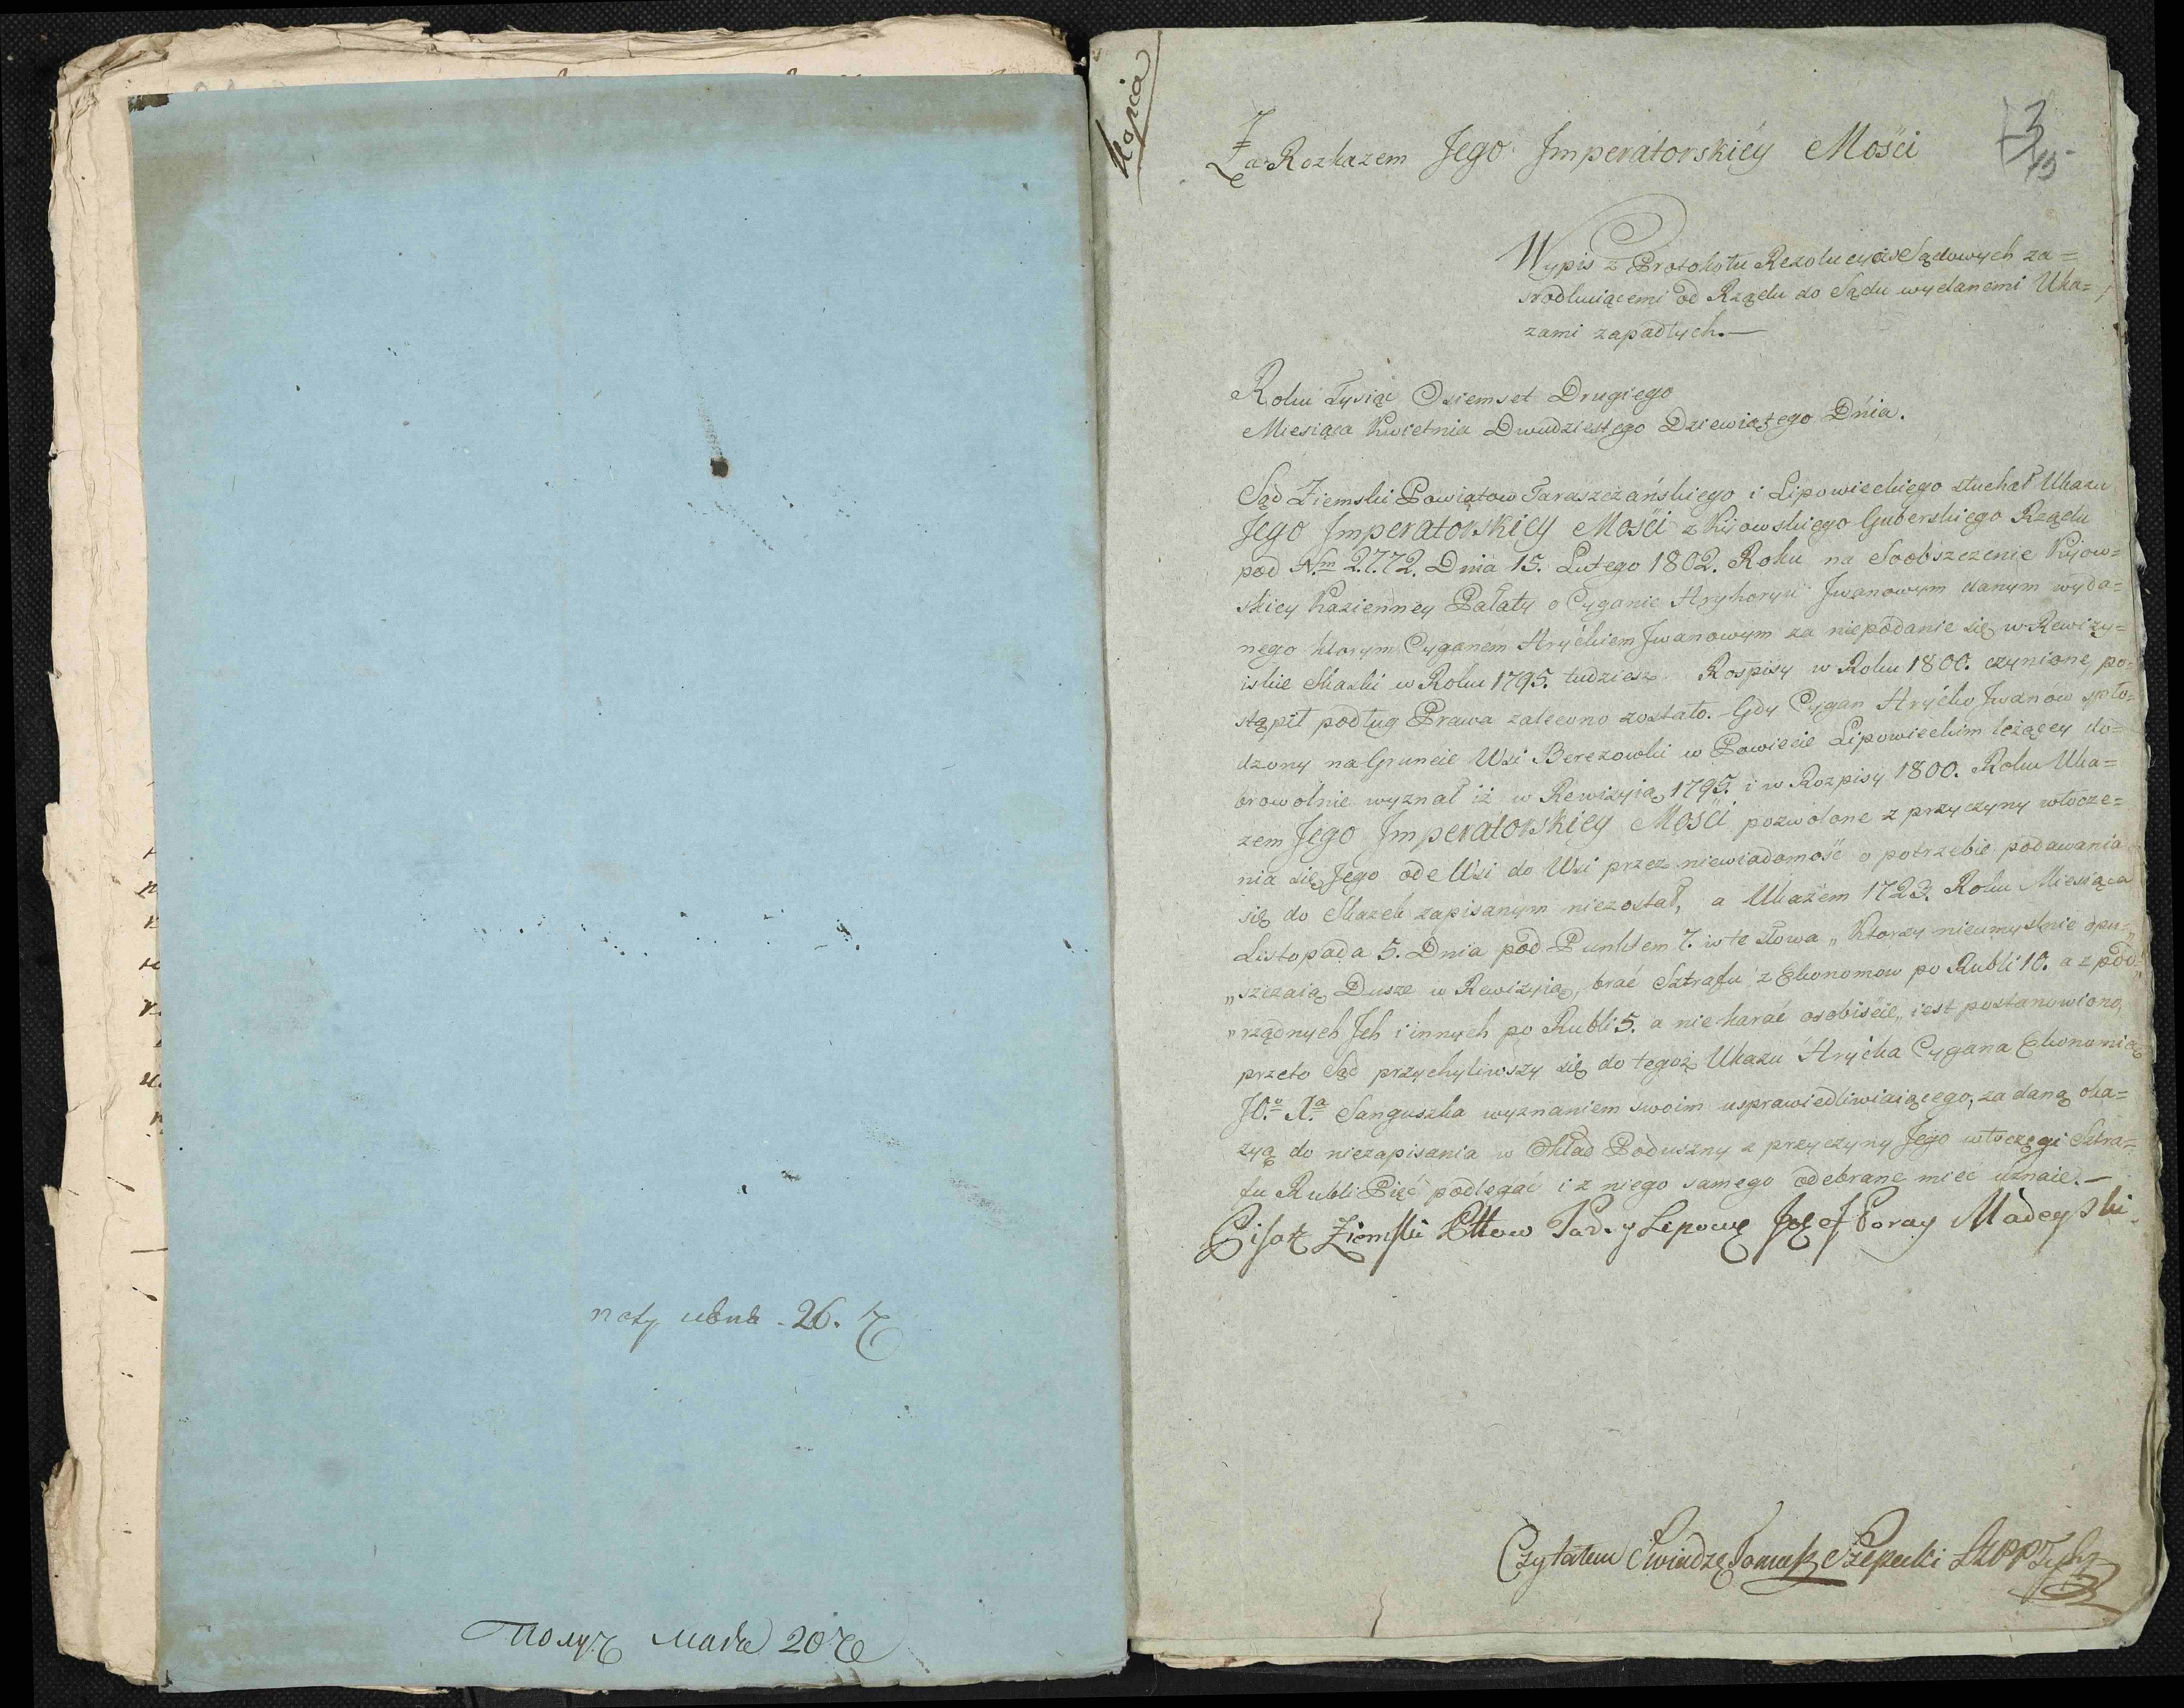 26.
Получ Маія 20 г
Kopia
Za Rozkazem Jego Imperatorskiey Mości
3
Wypis z Protokołu Rezolucyów Sądowych za=
srodkuiącemi od Rządu do Sądu wydanemi Uka=
zami zapadłych.—
Roku Tysiąc Osiemset Drugiego
Miesiąca Kwietnia Dwudziestego Dziewiątego Dnia.
Sąd Ziemski Powiatow Taraszczańskiego i Lipowieckiego słuchał Ukazu
Jego Imperatorskiey Mości z Kijowskiego Guberskiego Rządu
pod N.m 2772. Dnia 15. Lutego 1802. Roku na Soobszczenie Kijow=
skiey Kazienney Pałaty o Cyganie Hryhoryu Iwanowym danym wyda=
nego którym Cyganem Hryćkiem Iwanowym za niepodanie się w Rewizy=
iskie Skazki w Roku 1795. tudziesz Rospisy w Roku 1800. czynione, po=
stąpił podług Prawa zalecono zostało. Gdy Cygan Hryćko Iwanow spło=
dzony na Gruncie Wsi Berezowki w Powiecie Lipowieckim leżącey do=
browolnie wyznał iż w Rewizyią 1795. i w Rozpisy 1800. Roku Uka=
zem Jego Imperatorskiey Mości pozwolone z przyczyny włocze=
nia się Jego ode Wsi do Wsi przez niewiadomość o potrzebie podawania
się do Skazek zapisanym niezostał, a Ukazem 1723. Roku Miesiąca
Listopada 5. Dnia pod Punktem 7. w te słowa „Ktorzy nieumyslnie opu=„
„szczaią Dusze w Rewizyią, brać Sztrafu z Ekonomow po Rubli 10. a z pod=„
„rządnych Ich i innych po Rubli 5. a nie karać osobiście„ iest postanowiono,
przeto Sąd przychyliwszy się do tegoż Ukazu Hryćka Cygana Ekonomią
JO.o Xa Sanguszka wyznaniem swoim usprawiedliwiaiącego, za daną oka=
zyą do niezapisania w Skład Poduszny z przyczyny Jego włoczęgi Sztra=
fu Rubli Pięć podlegać i z niego samego odebrane mieć uznaie.—
Pisarz Ziemski Pttow Tar. y Lipow Józef Poray Madeyski
Czytałem Swiadzę Tomasz Szepecki